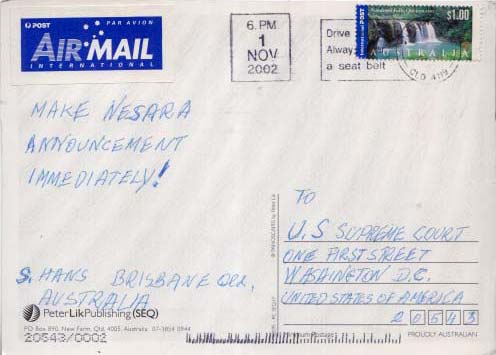 POST
PAR AVION
AIR MAIL
INTERNATIONAL
6.PM
1
NOV
2002
Drive
Alway
a seat belt
$1.00
AUSTRALIA
QLD 4119
MAKE NESARA
ANNOUNCEMENT
IMMEDIATELY!
S. HANS BRISBANE QLD,
AUSTRALIA
TO
U.S SUPREME COURT
ONE FIRST STREET
WASHINGTON D.C.
UNITED STATES OF AMERICA
20543
PeterLikPublishing (SEQ)
PO Box 890, New Farm, Qld. 4005, Australia 07-3854 0944
20543/0002
PROUDLY AUSTRALIAN